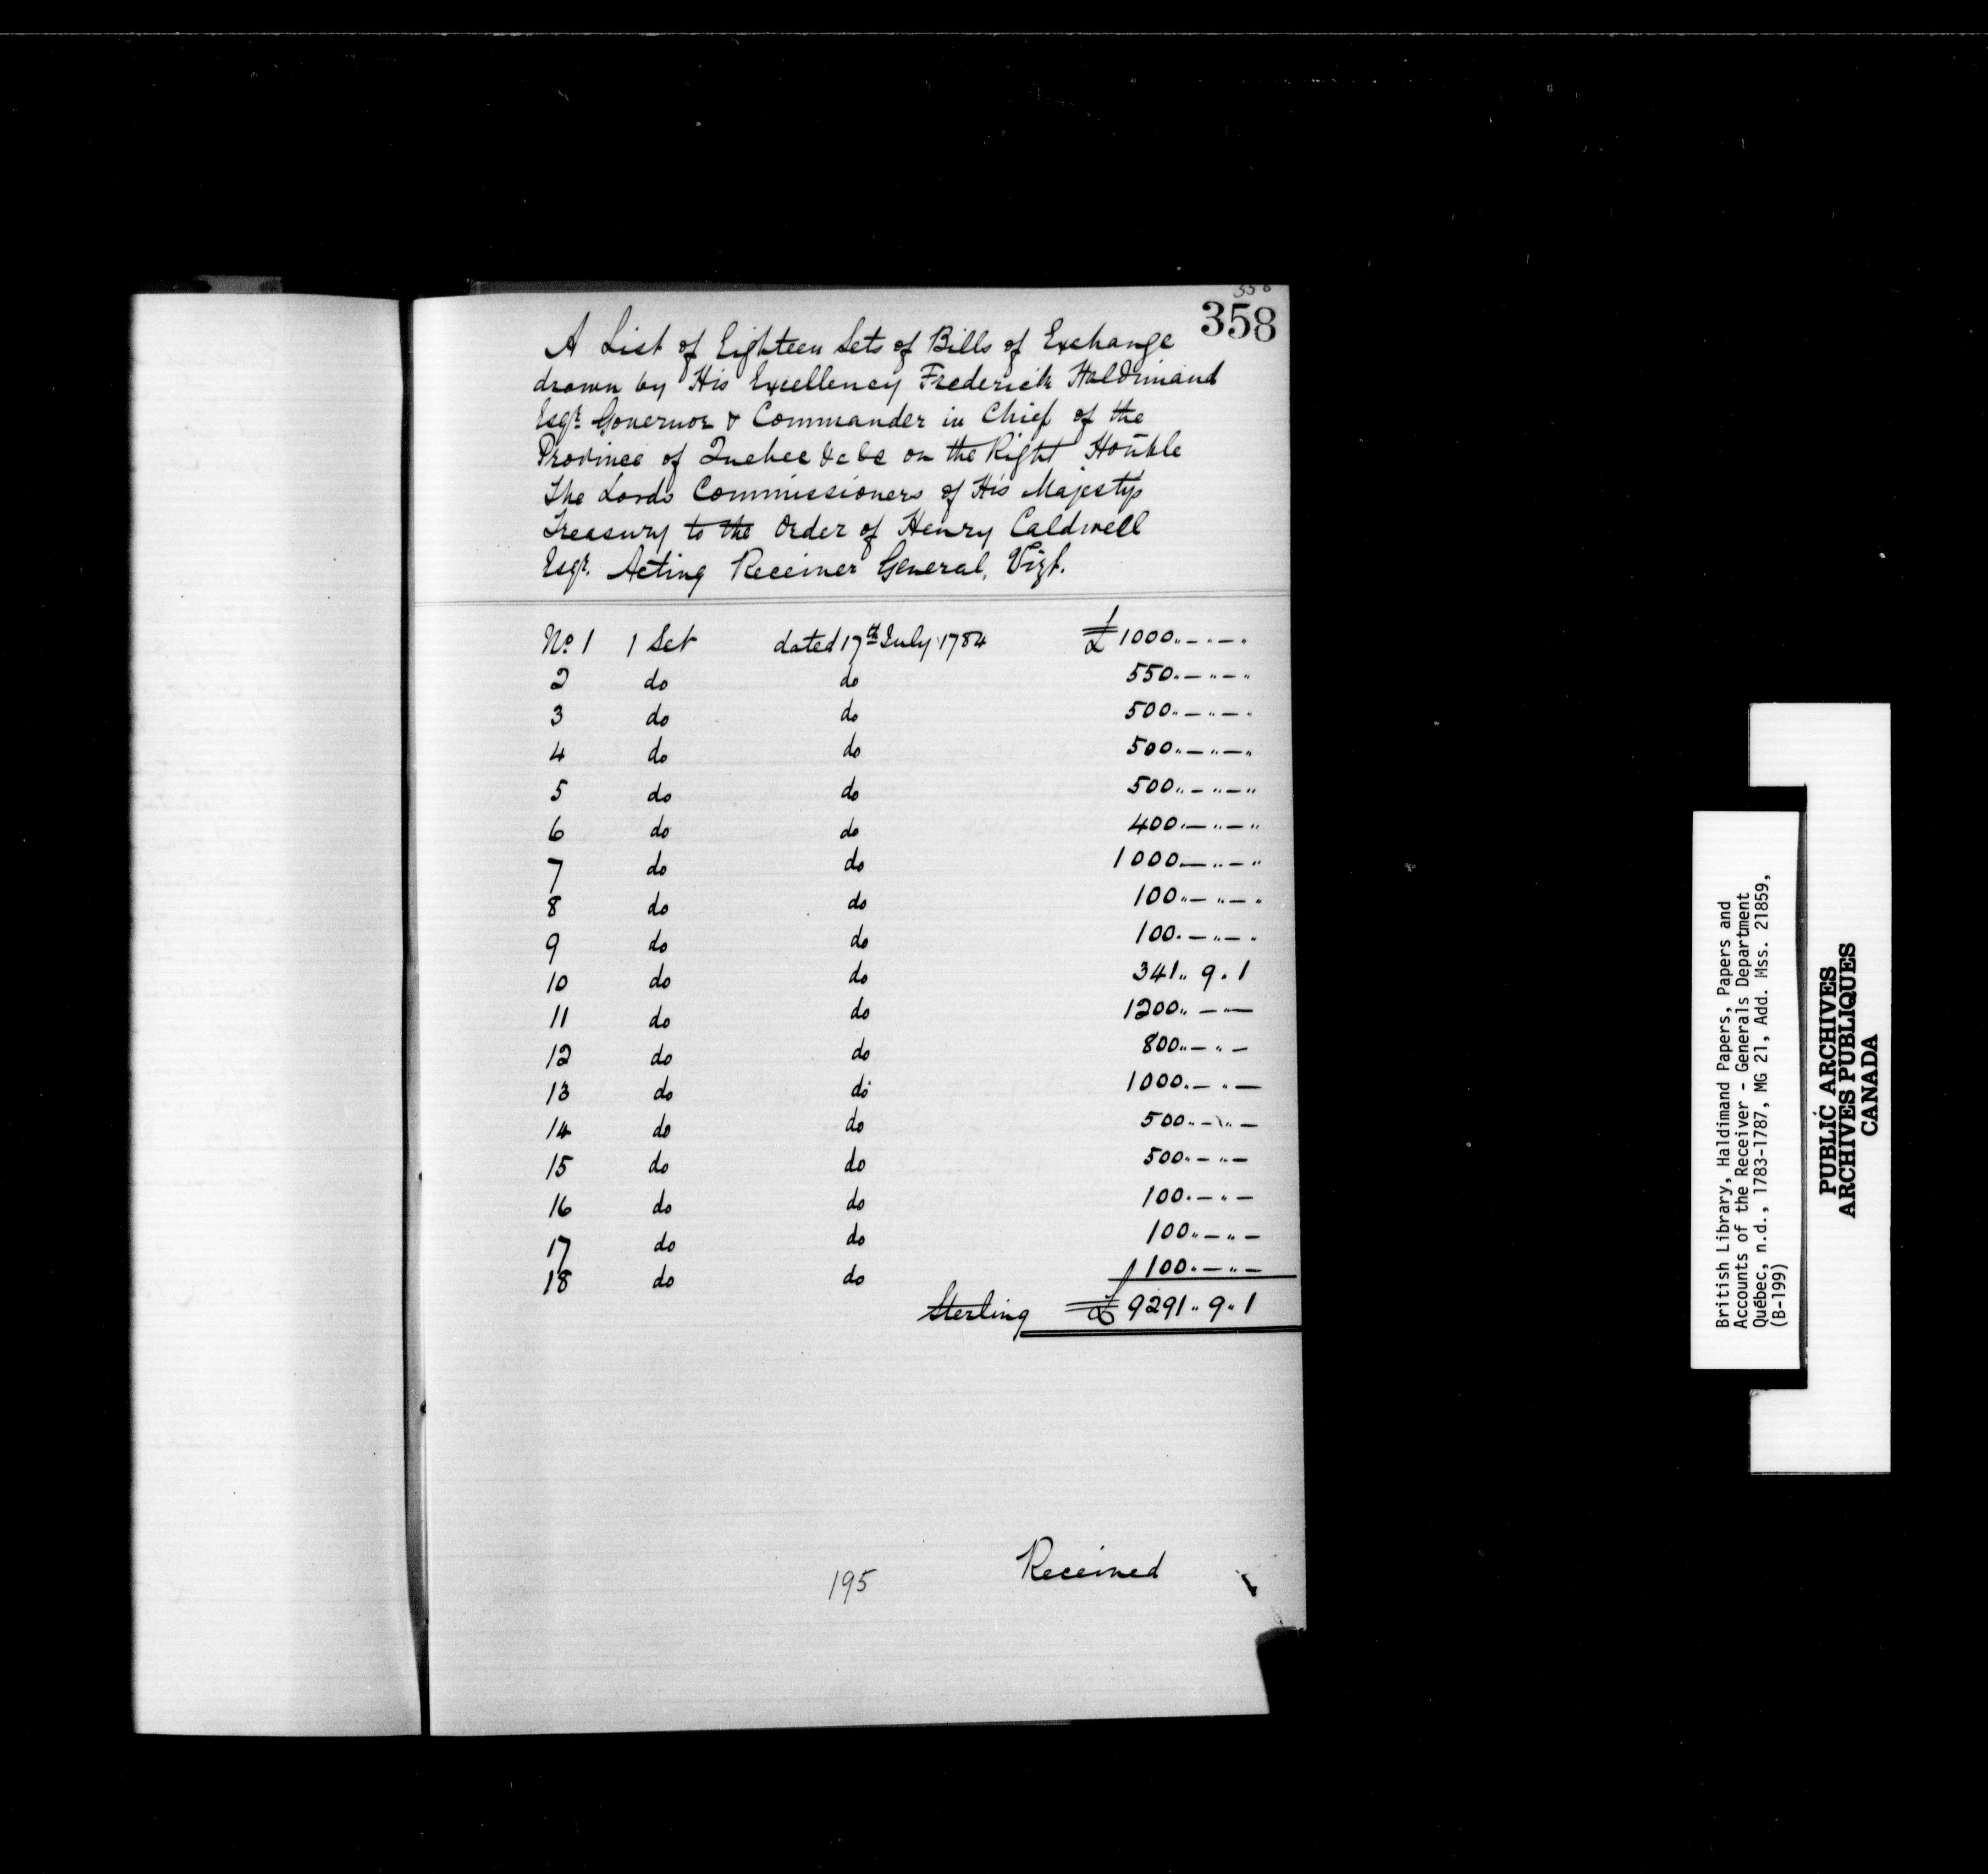 358
A List of Eighteen Sets of Bills of Exchange
drawn by His Excellency Frederick Haldimand
Esqr. Governor & Commander in Chief of the
Province of Quebec &c &c on the Right Honble
The Lords Commissioners of His Majesty's
Treasury to the Order of Henry Caldwell
Esqr. Acting Receiver General, Vizt.
No. 1 1 Set dated 17th July 1784 £ 1000.. — .. — ..
2 do do 550.. — .. — ..
3 do do 500.. — .. — ..
4 do do 500.. — .. — ..
5 do do 500.. — .. — ..
6 do do 400.. — .. — ..
7 do do 1000.. — .. — ..
8 do do 100.. — .. — ..
9 do do 100.. — .. — ..
10 do do 341.. 9. 1
11 do do 1200.. — .. —
12 do do 800.. — .. —
13 do do 1000.. — .. —
14 do do 500.. — .. —
15 do do 500.. — .. —
16 do do 100.. — .. —
17 do do 100.. — .. —
18 do do 100.. — .. —
Sterling £ 9291.. 9.. 1
Received
195
British Library, Haldimand Papers, Papers and
Accounts of the Receiver - Generals Department
Québec, n.d., 1783-1787, MG 21, Add. Mss. 21859,
(B-199)
PUBLIC ARCHIVES
ARCHIVES PUBLIQUES
CANADA